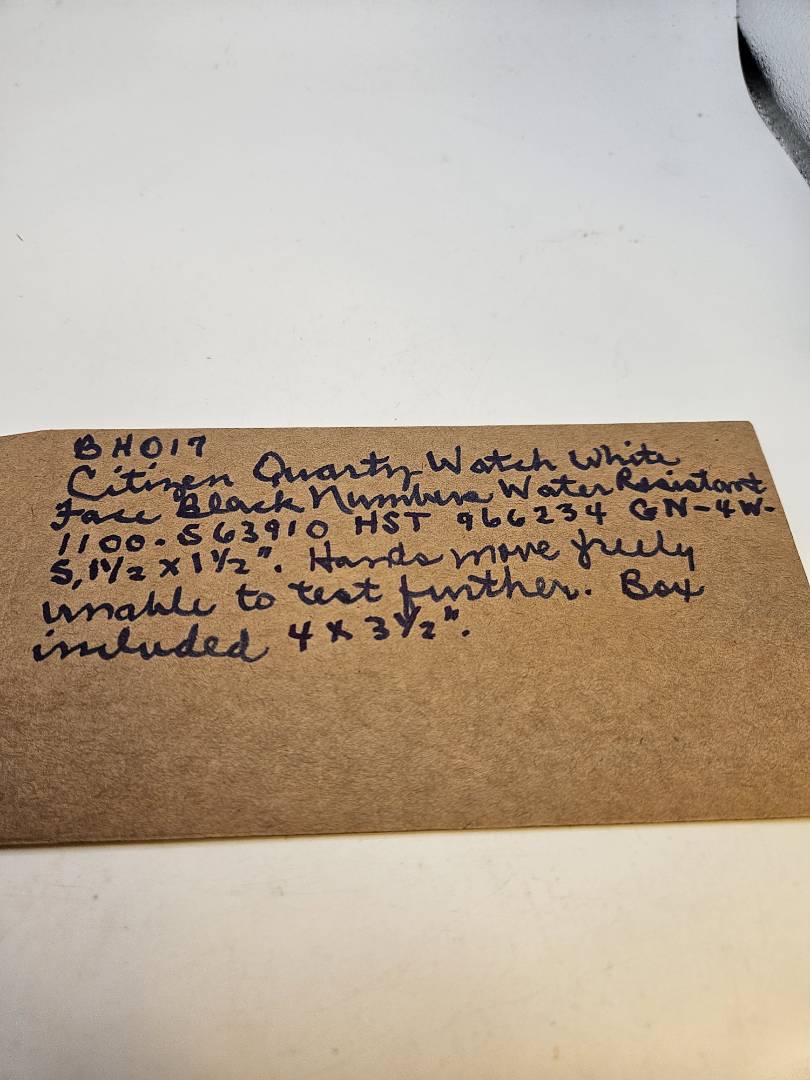 BH017
Citizen Quartz Watch White
Face Black Numbers Water Resistant
1100-S63910 HST 966234 GN-4W-
S, 1 1/2 x 1 1/2". Hands move freely
unable to test further. Box
included 4 x 3 1/2".